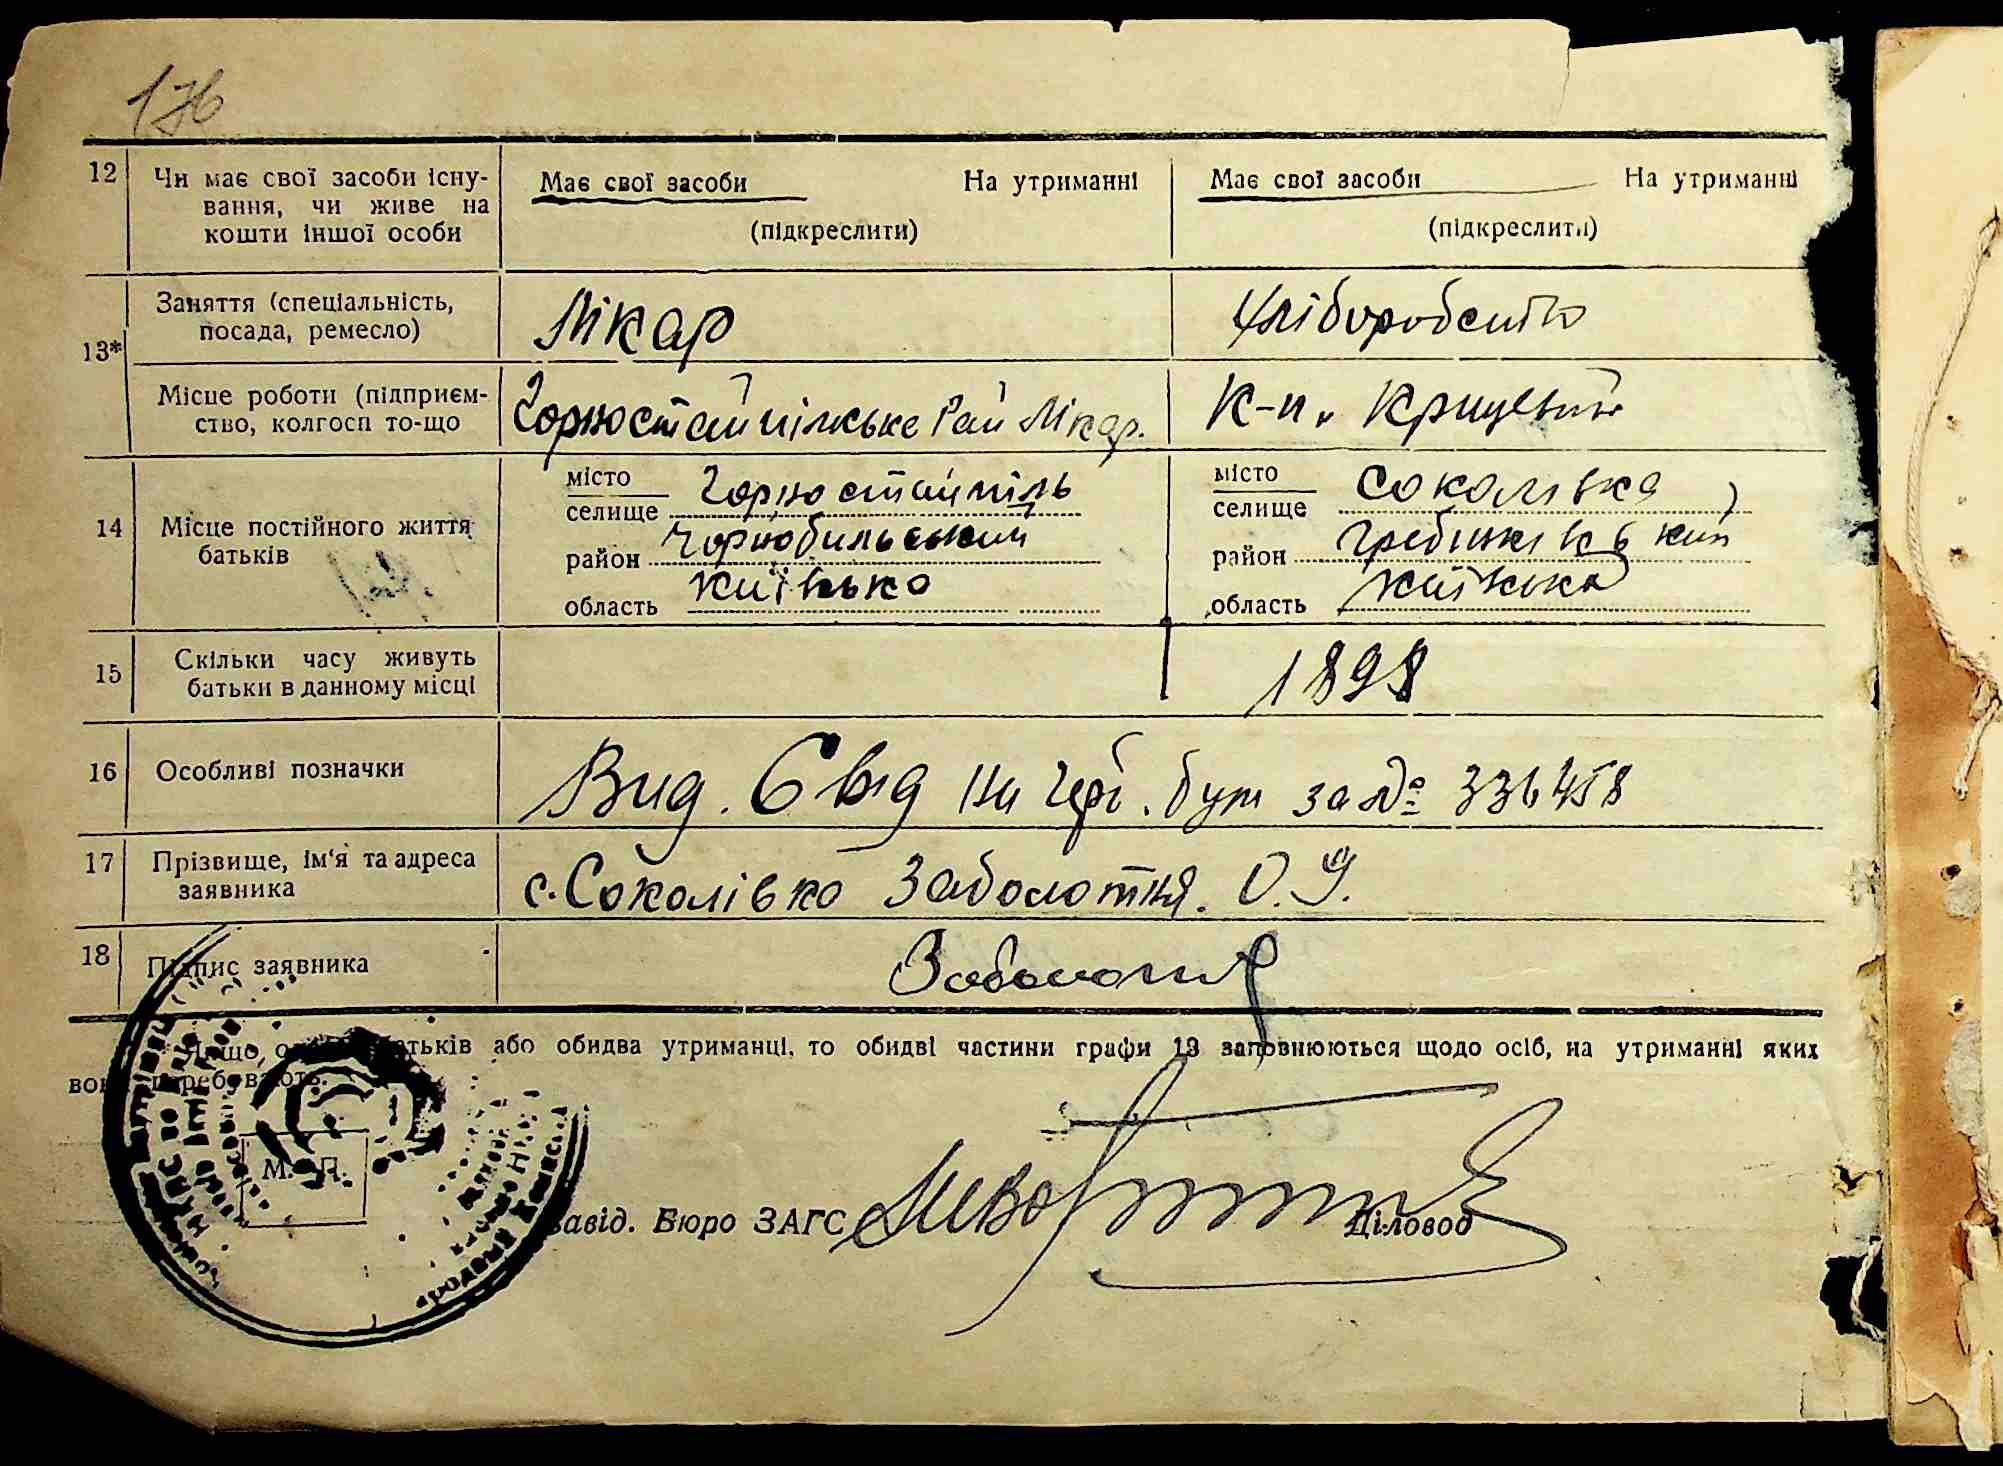 176
12 Чи має свої засоби існу- Має свої засоби На утриманні Має свої засоби На утриманні
вання, чи живе на
кошти іншої особи (підкреслити) (підкреслити)
13* Заняття (спеціальність, Лікар Хлібороб
посада, ремесло)
Місце роботи (підприєм- Чорностайпілське Рай Лікар. К-п.
ство, колгосп то-що
14 Місце постійного життя батьків
місто Чорностайпіль місто Соколівка
селище селище
район Чорнобильський район Гребінківський
область Київська область Київська
15 Скільки часу живуть 1898
батьки в данному місці
16 Особливі позначки Вид. Свід на бут за № 336458
17 Прізвище, ім'я та адреса с. Соколівка Заболотня. О.
заявника
18 Підпис заявника Заболотня
Якщо, батьків або обидва утриманці, то обидві частини графи 13 заповнюються щодо осіб, на утриманні яких
вони перебувають.
М. П.
Завід. Бюро ЗАГС Діловод